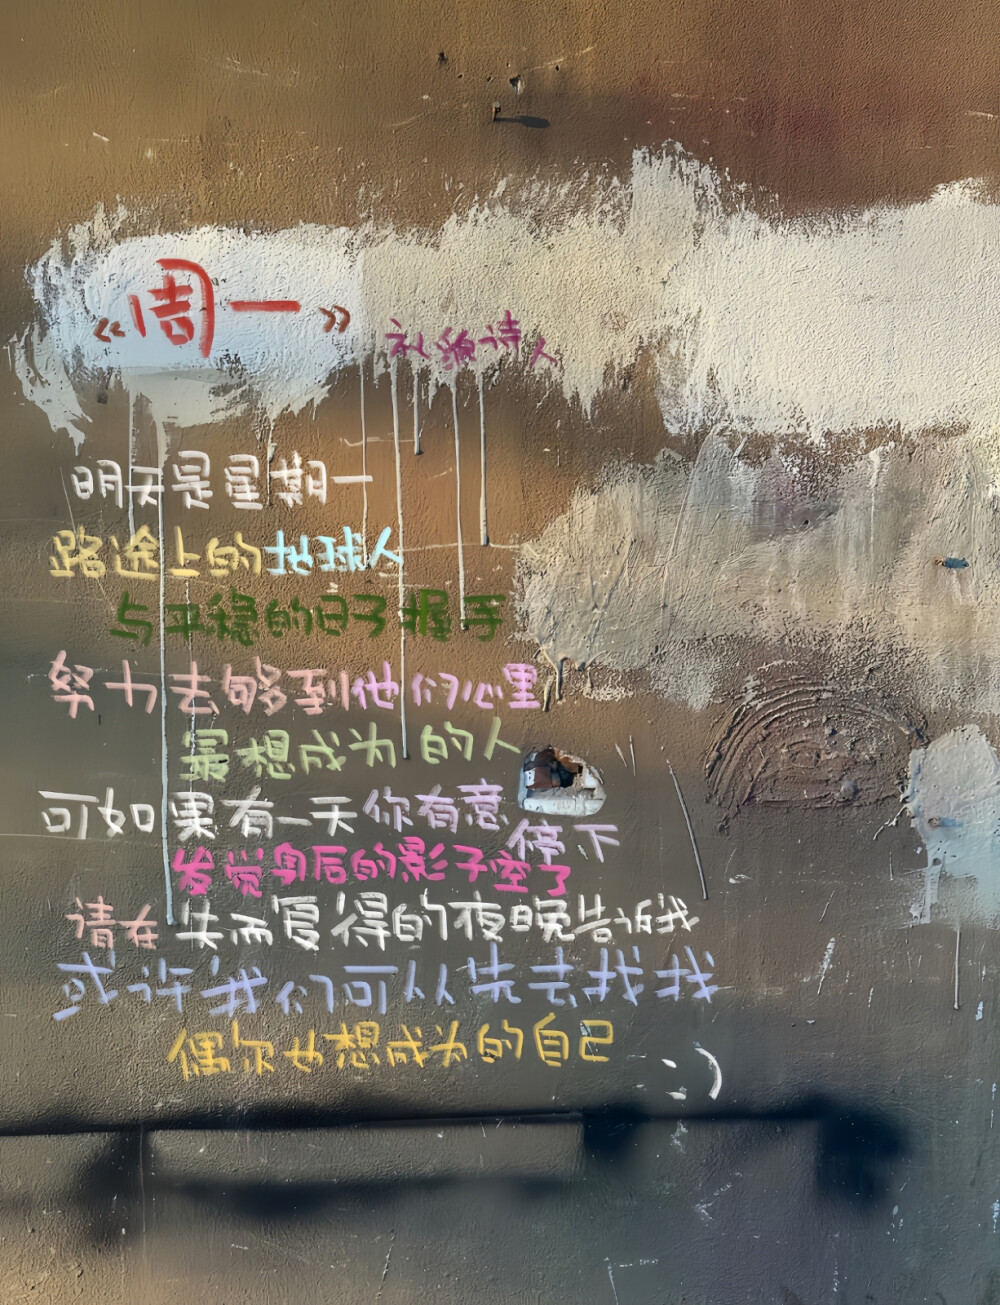 《周一》
礼貌诗人
明天是星期一
路途上的地球人
与平稳的日子握手
努力去够到他们心里
最想成为的人
可如果有一天你有意停下
发觉身后的影子空了
请在失而复得的夜晚告诉我
或许我们可以先去找找
偶尔也想成为的自己
:)